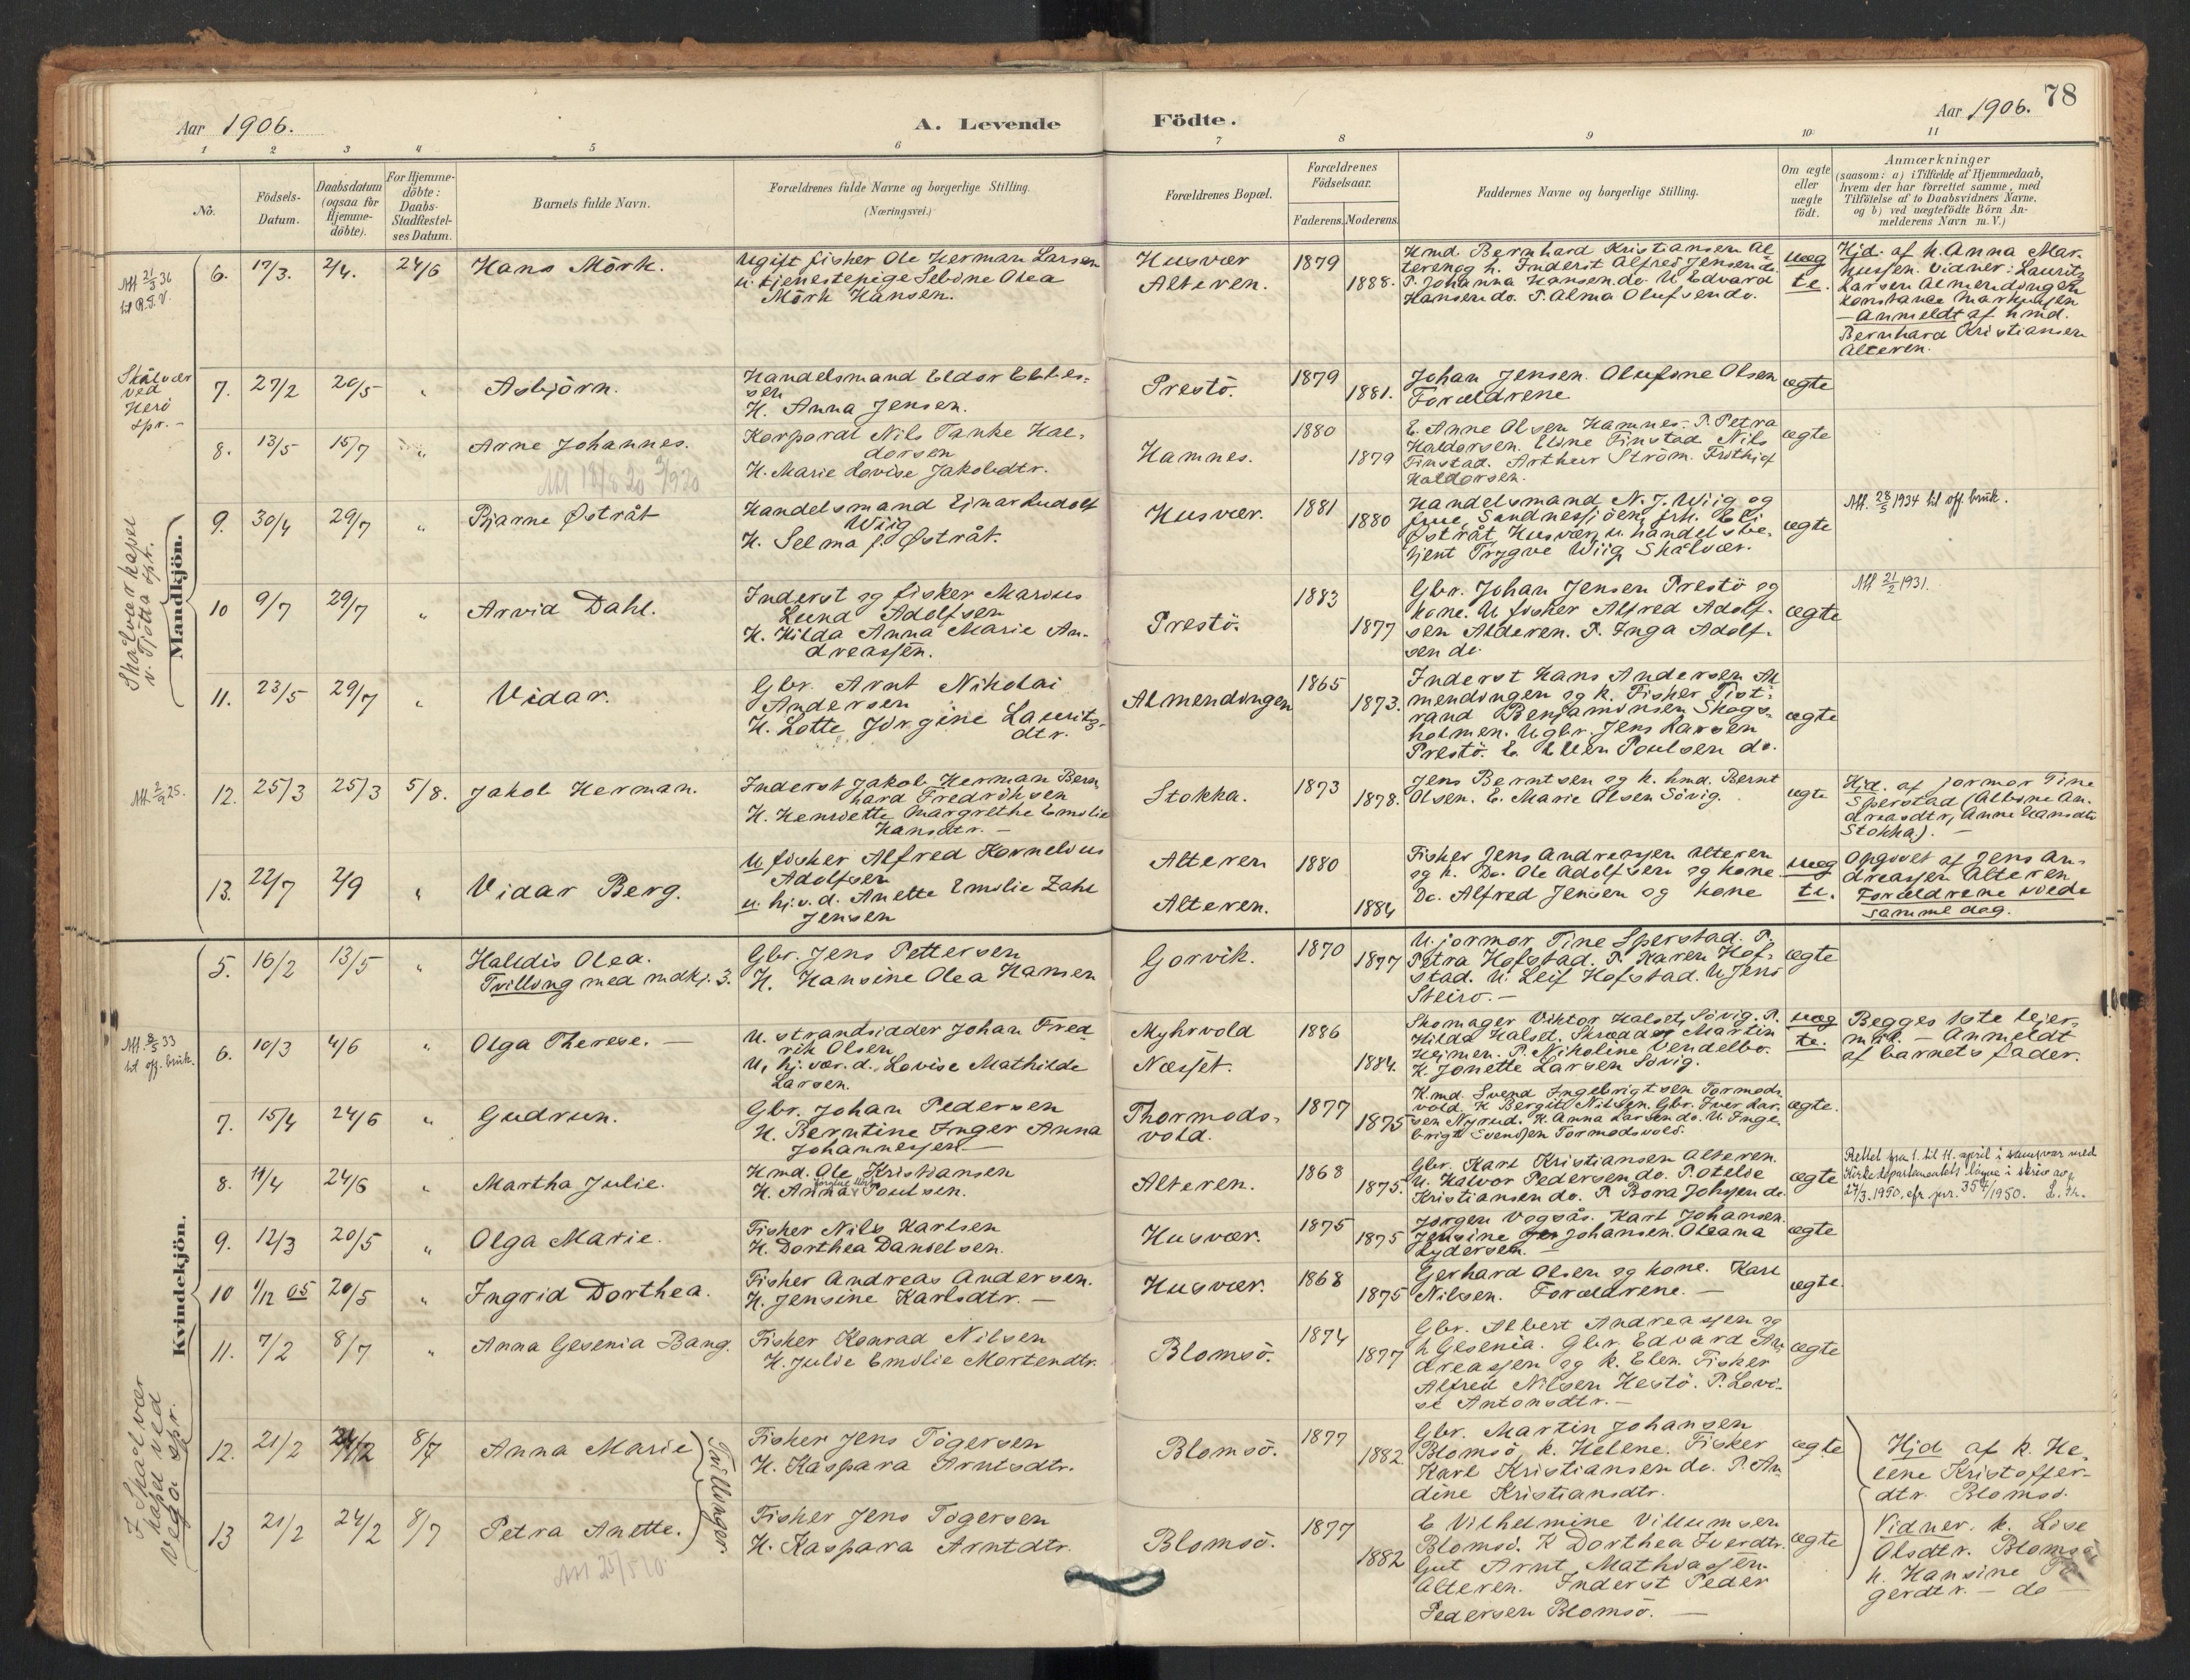 Aar 1906.
A. Levende
Födte.
Aar 1906.
78
1 2 3 4 5 6 7 8 9 10 11
No.
Födsels-
Datum.
Daabsdatum
(ogsaa for
Hjemme-
döbte).
For Hjemme-
döbte:
Daabs-
Stadfæstel-
ses Datum.
Barnets fulde Navn.
Forældrenes fulde Navne og borgerlige Stilling.
(Næringsvei.)
Forældrenes Bopæl.
Forældrenes
Födselsaar.
Faderens. Moderens.
Faddernes Navne og borgerlige Stilling.
Om ægte
eller
uægte
födt.
Anmærkninger
(saasom: a) i Tilfælde af Hjemmedaab,
hvem der har forrettet samme, med
Tilföielse af to Daabsvidners Navne.
og b) ved uægtefödte Börn An-
melderens Navn m. V.)
Mandkjön.
Skålvær kapel
v. Tjötta spr.
Att 21/3 36
til R.T.V.
6. 17/3. 2/4. 24/6 Hans Mörk.
Ugift fisker Ole Herman Larsen
u. tjenestepige Sebine Olea
Mörk Hansen.
Husvær
Alteren.
1879
1888.
Hmd. Bernhard Kristiansen Al
teren og h. Inderst Alfred Jensen do.
P. Johanna Hansen do. U Edvard
Hansen do. P. Alma Olufsen do.
uæg
te.
Hjd. af k. Anna Mar-
kussen. Vidner: Lauritz
Larsen Almendingen
Konstanse Markussen
- Anmeldt af hmd.
Bernhard Kristiansen
Alteren.
Skålvær
ved
Herö
spr. -
7. 27/2 20/5 " Asbjörn.
Handelsmand Eldor Ebbes-
sen
H. Anna Jensen.
Prestö.
1879
1881.
Johan Jensen. Olufine Olsen
Forældrene
ægte
8. 13/5 15/7 " Arne Johannes.
Korporal Nils Tanke Hal-
dorsen
H. Marie Lovise Jakobdtr.
Hamnes.
1880
1879
E. Anne Olsen Hamnes. P. Petra
Haldorsen. Eline Finstad Nils
Finstad. Arthur Ström. Frithjof
Haldorsen.
ægte
9. 30/4 29/7 " Bjarne Østråt
Handelsmand Ejnar Ludolf
Wiig
H. Selma f. Østråt.
Husvær.
1881
1880
Handelsmand N. J. Wiig og
frue, Sandnessjöen, frk. Eli
Østråt, Husvær, u. handelsbe-
tjent Trygve Wiig Skålvær.
ægte
Att. 28/5 1934 til off. bruk.
10 9/7 29/7 " Arvid Dahl.
Inderst og fisker Marius
Lund Adolfsen
H. Hilda Anna Marie An-
dreassen.
Prestö.
1883
1877
Gbr. Johan Jensen Prestö og
kone. U. fisker Alfred Adolf-
sen Alderen. P. Inga Adolf-
sen do.
ægte
Att 21/2 1931.
11. 23/5 29/7 " Vidar.
Gbr. Arnt Nikolai
Andersen
H. Lotte Jörgine Lauritz-
dtr.
Almendingen
1865
1873.
Inderst Hans Andersen Al
mendingen og k. Fisker Tist-
rand Benjaminsen Skogs-
holmen. U gbr. Jens Larsen
Prestö. E. Ellen Poulsen do.
ægte
Att. 2/9 25.
12. 25/3 25/3 5/8. Jakob Herman.
Inderst Jakob Herman Bern
hard Fredriksen
H. Henriette Margrethe Emilie
Hansdtr. -
Stokka.
1873
1878.
Jens Berntsen og k. hmd. Bernt
Olsen. E. Marie Olsen Sövig.
ægte
Hjd. af jormor Tine
Sperstad (Albine An-
dreasdtr, Anne Hansdtr
Stokka). -
13. 22/7 2/9 " Vidar Berg.
U. fisker Alfred Kornelius
Adolfsen
u. hj.v.d. Anette Emilie Zahl
Jensen
Alteren
Alteren.
1880
1884
Fisker Jens Andreassen Alteren
og k. Do. Ole Adolfsen og kone
Do. Alfred Jensen og kone
uæg
te.
Opgivet af Jens An-
dreassen Alteren
Forældrene viede
samme dag.
Kvindekjön.
5. 16/2 13/5 " Haldis Olea.
Tvilling med mdkj. 3.
Gbr. Jens Pettersen
H. Hansine Olea Hansen
Gorvik.
1870
1877
U. jormor Tine Sperstad. P.
Petra Hofstad. P. Karen Hof-
stad. U. Leif Hofstad. U Jens
Steiro. -
ægte
Att. 8/5 33
til off. bruk.
6. 10/3 4/6 " Olga Therese. -
U. strandsidder Johan Fred
rik Olsen
U, hj. vær. d., Lovise Mathilde
Larsen.
Myhrvold
Næsset.
1886
1884.
Skomager Viktor Halset, Sövig. P.
Hilda Halset. Skrædder Martin
Heimen. P. Nikoline Vendelbo.
K. Jonette Larsen Sövig.
uæg
te.
Begges 1ste lejer-
mål. - Anmeldt
af barnets fader.
7. 15/4 24/6 " Gudrun.
Gbr. Johan Pedersen
H. Berntine Inger Anna
Johannessen -
Thormods-
vold.
1877
1875
H.md. Svend Ingebrigtsen Tormods-
vold, K Bergit Nilsen. Gbr. Iver Lar-
sen Nyrud. K. Anna Larsen do. U. Inge-
brigt Svendsen Tormodsvold.
ægte.
8. 11/4 24/6 " Martha Julie.
Hmd. Ole Kristiansen
H. Anna Poulsen.
Alteren.
1868
1875.
Gbr. Karl Kristiansen Alteren.
U. Halvor Pedersen do. P. Otelie
Kristiansen do. P Bora Johsen do.
ægte
Rettet fra 1. til 11. april i samsvar med
Kirkedepartementets løyve i skriv av
27/3. 1950. cfr. jnr. 354/1950.
9. 12/3 20/5 " Olga Marie.
Fisker Nils Karlsen
H. Dorthea Danielsen.
Husvær.
1875
1875
Jörgen Vogsås. Karl Johansen.
Jensine Johansen. Oleana
Lydersen.
ægte
10 1/12 05 20/5 " Ingrid Dorthea.
Fisker Andreas Andersen.
H. Jensine Karlsdtr. -
Husvær.
1868
1875
Gerhard Olsen og kone. Karl
Nilsen. Forældrene. -
ægte.
11. 7/2 8/7 " Anna Gesenia Bang.
Fisker Konrad Nilsen
H. Julie Emilie Mortendtr.
Blomsö.
1874
1877
Gbr. Albert Andreassen og
h Gesenia. Gbr. Edvard An-
dreassen og k. Elen. Fisker
Alfred Nilsen Hestö. P. Lovi-
se Antonsdtr. -
ægte
I Skaalvær
kapel ved
Vega spr.
12. 21/2 24/2 8/7 Anna Marie
Tvillinger
Fisker Jens Tögersen
H. Kaspara Arntsdtr.
Blomsö.
1877
1882.
Gbr. Martin Johansen
Blomsö, k. Helene. Fisker
Karl Kristiansen do. P. An
dine Kristiansdtr.
ægte
Hjd af k. He-
lene Kristoffer-
dtr. Blomsö.
13 21/2 24/2 8/7 Petra Anette.
Fisker Jens Tögersen
H. Kaspara Arntdtr.
Blomsö.
1877
1882
E Vilhelmine Villumsen
Blomsö. K Dorthea Iverdtr.
Gut Arnt Mathiassen
Alteren. Inderst Peder
Pedersen Blomsö. -
ægte
Vidner. k. Lise
Olsdtr. Blomsö
k. Hansine Tö-
gerdtr. - do -